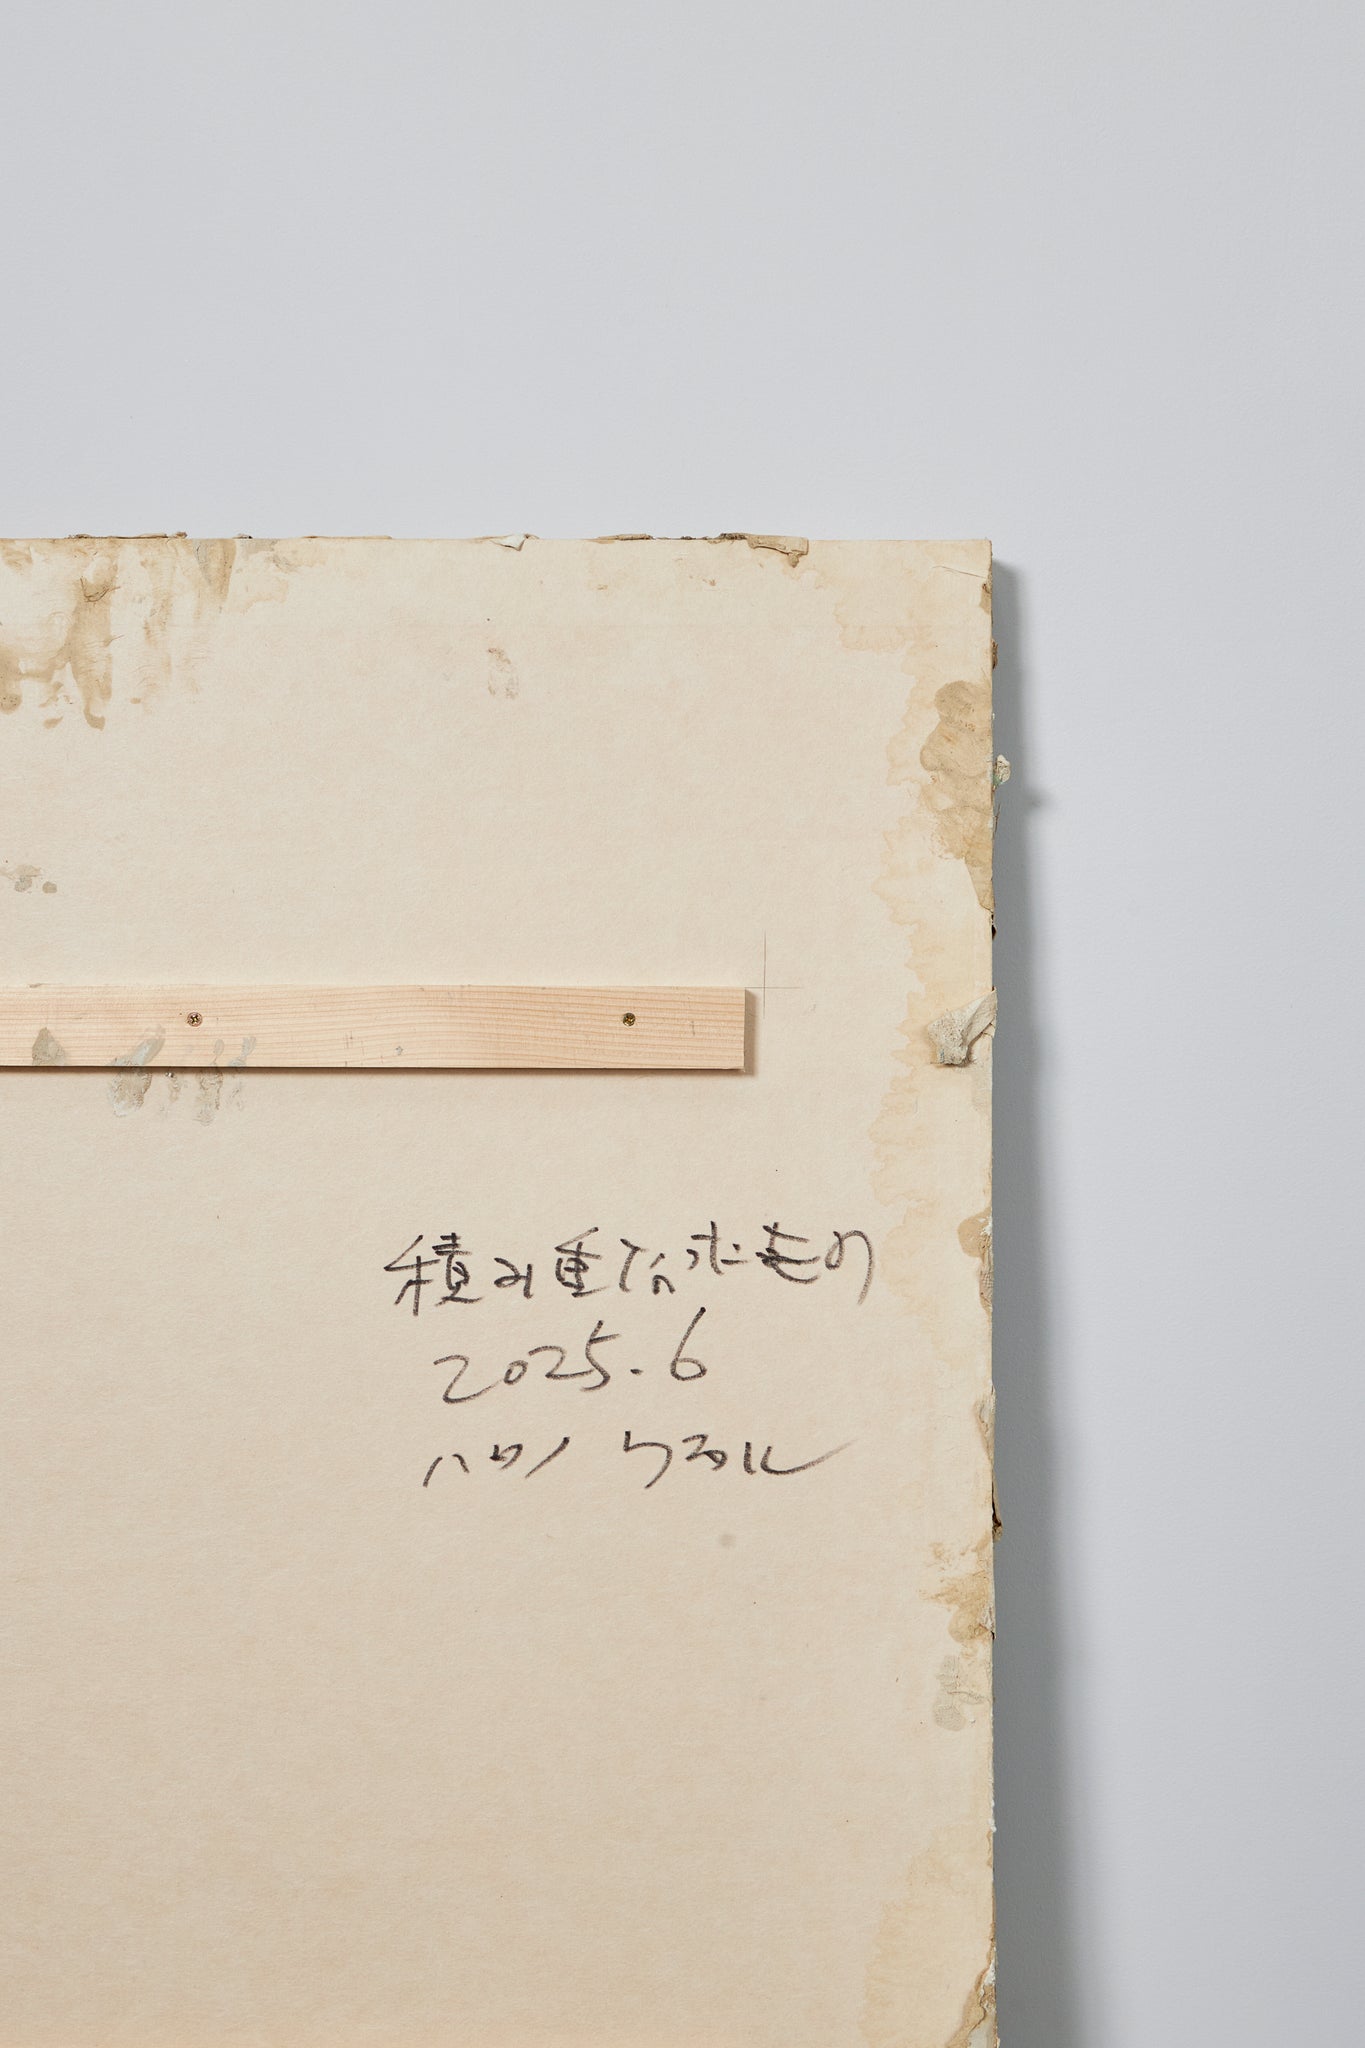 積み重なったもの
2025.6
ハタノ ワタル